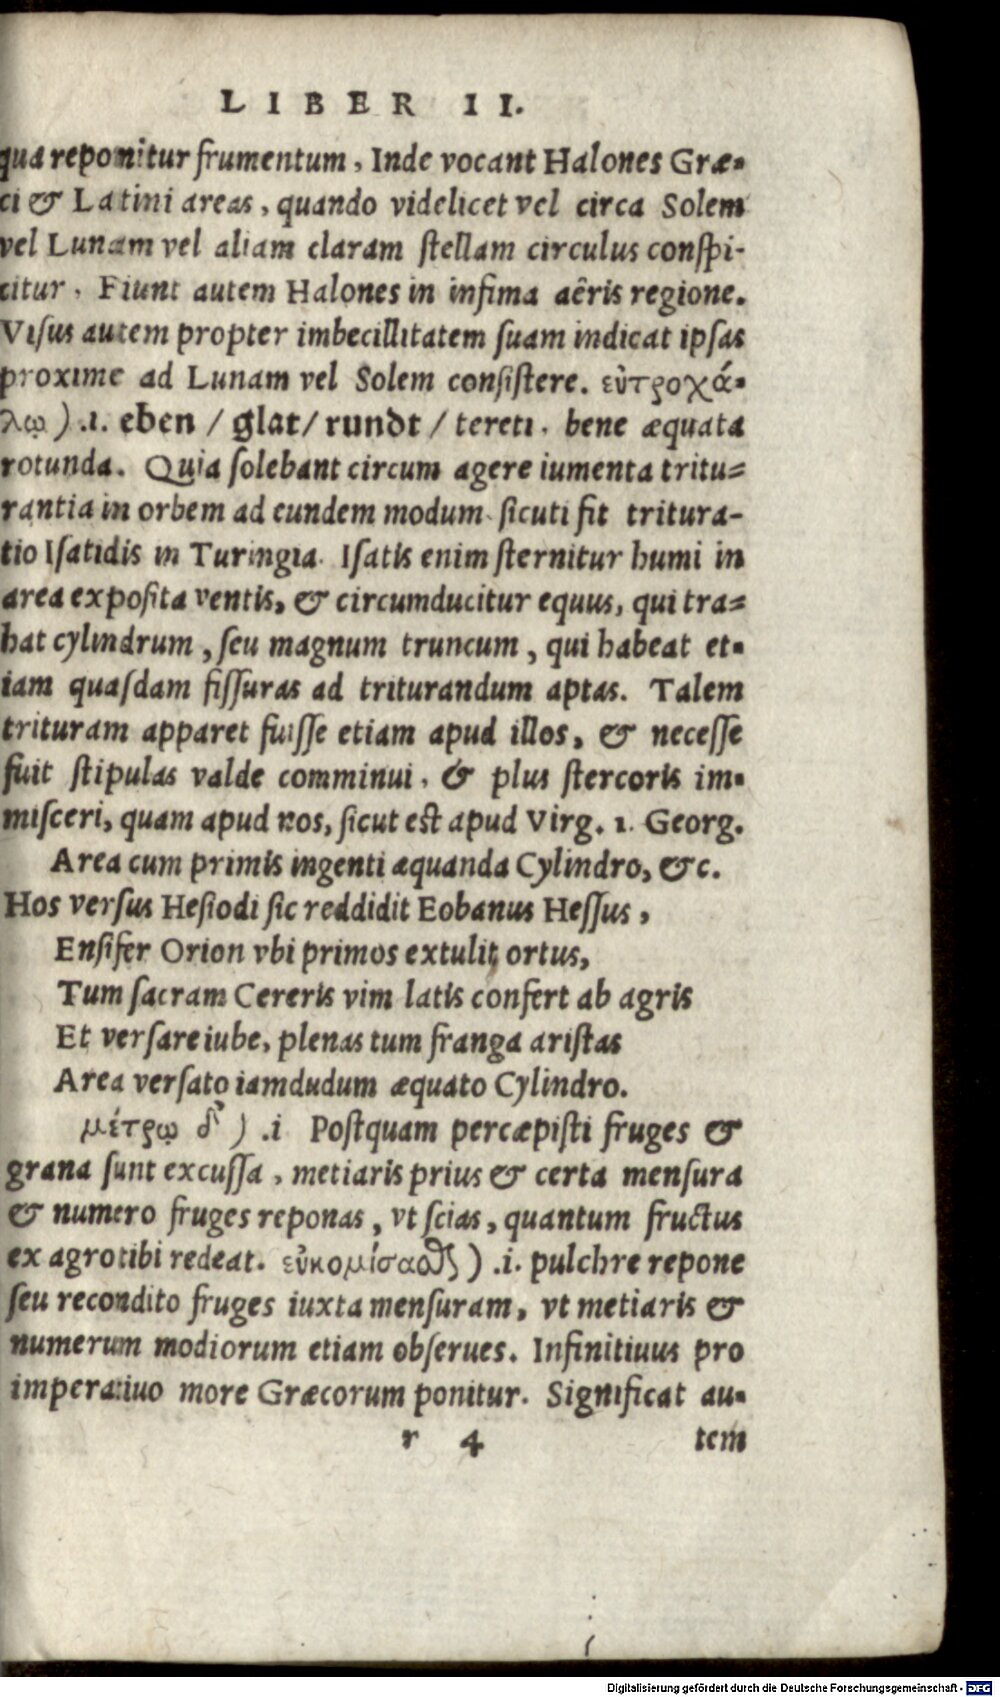 LIBER II.
qua reponitur frumentum, Inde vocant Halones Græ-
ci & Latini areas, quando videlicet vel circa Solem
vel Lunam vel aliam claram ſtellam circulus conſpi-
citur. Fiunt autem Halones in infima aëris regione.
Viſus autem propter imbecillitatem ſuam indicat ipſas
proxime ad Lunam vel Solem conſiſtere. εὐτροχά-
λῳ) .1. eben / glat / rundt / tereti. bene æquata
rotunda. Quia ſolebant circum agere iumenta tritu-
rantia in orbem ad eundem modum ſicuti fit tritura-
tio Iſatidis in Turingia. Iſatis enim ſternitur humi in
area expoſita ventis, & circumducitur equus, qui tra-
hat cylindrum, ſeu magnum truncum, qui habeat et-
iam quaſdam fiſſuras ad triturandum aptas. Talem
trituram apparet fuiſſe etiam apud illos, & neceſſe
fuit ſtipulas valde comminui, & plus ſtercoris im-
miſceri, quam apud nos, ſicut eſt apud Virg. 1. Georg.
Area cum primis ingenti æquanda Cylindro, &c.
Hos verſus Heſiodi ſic reddidit Eobanus Heſſus,
Enſifer Orion vbi primos extulit ortus,
Tum ſacram Cereris vim latis confert ab agris
Et verſare iube, plenas tum franga ariſtas
Area verſato iamdudum æquato Cylindro.
μέτρῳ δ') .i Poſtquam percæpiſti fruges &
grana ſunt excuſſa, metiaris prius & certa menſura
& numero fruges reponas, vt ſcias, quantum fructus
ex agro tibi redeat. εὐκομίσαϑς) .i. pulchre repone
ſeu recondito fruges iuxta menſuram, vt metiaris &
numerum modiorum etiam obſerues. Infinitiuus pro
imperatiuo more Græcorum ponitur. Significat au-
r 4 tem
Digitalisierung gefördert durch die Deutsche Forschungsgemeinschaft - DFG